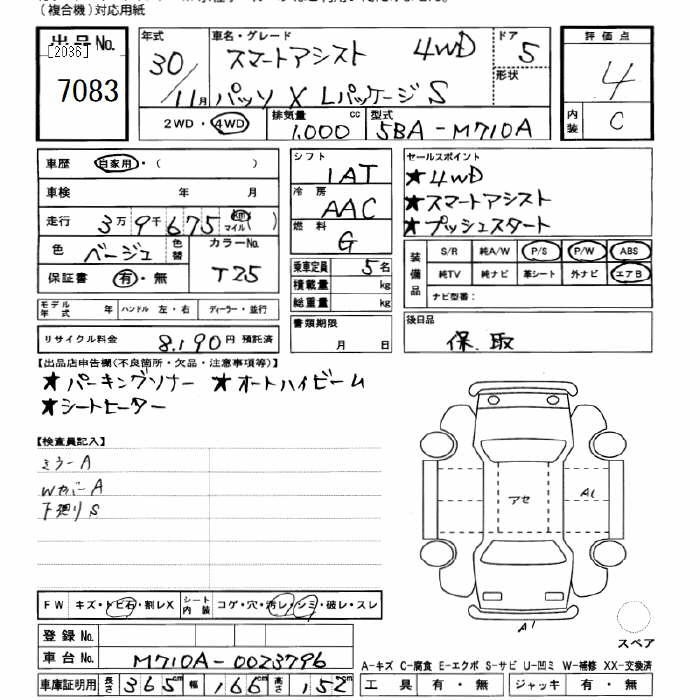 （複合機）対応用紙
出品No.
[2036]
7083
年式
30/11月
車名・グレード
スマートアシスト 4WD
パッソ X Lパッケージ S
ドア
5
形状
2WD・4WD
排気量
1,000 cc
型式
5BA-M710A
評価点
4
内装
C
車歴 自家用・（ ）
車検 年 月
走行 3万9千675 km マイル（ ）
色 ベージュ 色替
カラーNo.
T25
保証書 有・無
モデル年式 年 ハンドル 左・右 ディーラー・並行
リサイクル料金 8,190円 預託済
シフト
IAT
冷房
AAC
燃料
G
乗車定員 5名
積載量 kg
総重量 kg
書類期限
月 日
セールスポイント
★4WD
★スマートアシスト
★プッシュスタート
装備品
S/R 純A/W P/S P/W ABS
純TV 純ナビ 革シート 外ナビ エアB
ナビ型番：
後日品
保.取
【出品店申告欄（不良箇所・欠品・注意事項等）】
★パーキングソナー ★オートハイビーム
★シートヒーター
【検査員記入】
ミラーA
WカバーA
下廻りS
アセ
A1
A1
スペア
FW キズ・トビ石・割レX
シート内装 コゲ・穴・汚レ・シミ・破レ・スレ
登録No.
車台No. M710A-0023796
車庫証明用 長さ 365cm 幅 166cm 高さ 152cm
A-キズ C-腐食 E-エクボ S-サビ U-凹ミ W-補修 XX-交換済
工具 有・無 ジャッキ 有・無